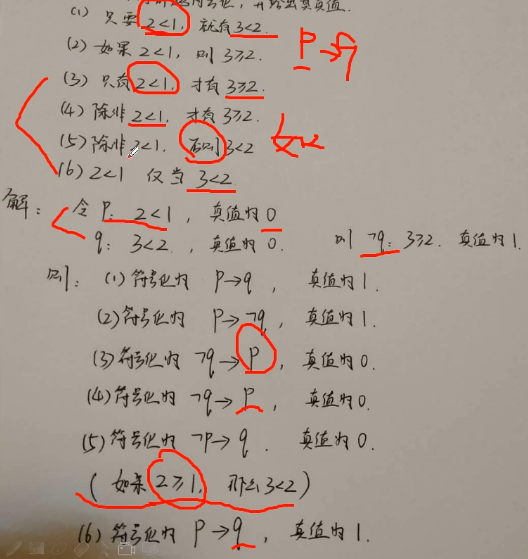 符号化,并给出真值.
(1) 只要 2<1, 就有 3<2.
(2) 如果 2<1, 则 3≥2.
P→q
(3) 只有 2<1, 才有 3≥2.
(4) 除非 2<1, 才有 3≥2.
(5) 除非 2<1, 否则 3<2
(6) 2<1 仅当 3<2.
解: 令 P: 2<1, 真值为 0
q: 3<2, 真值为 0. 则 ¬q: 3≥2. 真值为 1.
则: (1) 符号化为 P→q, 真值为 1.
(2) 符号化为 P→¬q, 真值为 1.
(3) 符号化为 ¬q→P, 真值为 0.
(4) 符号化为 ¬q→P, 真值为 0.
(5) 符号化为 ¬P→q. 真值为 0.
(如果 2≥1, 那么 3<2)
(6) 符号化为 P→q, 真值为 1.